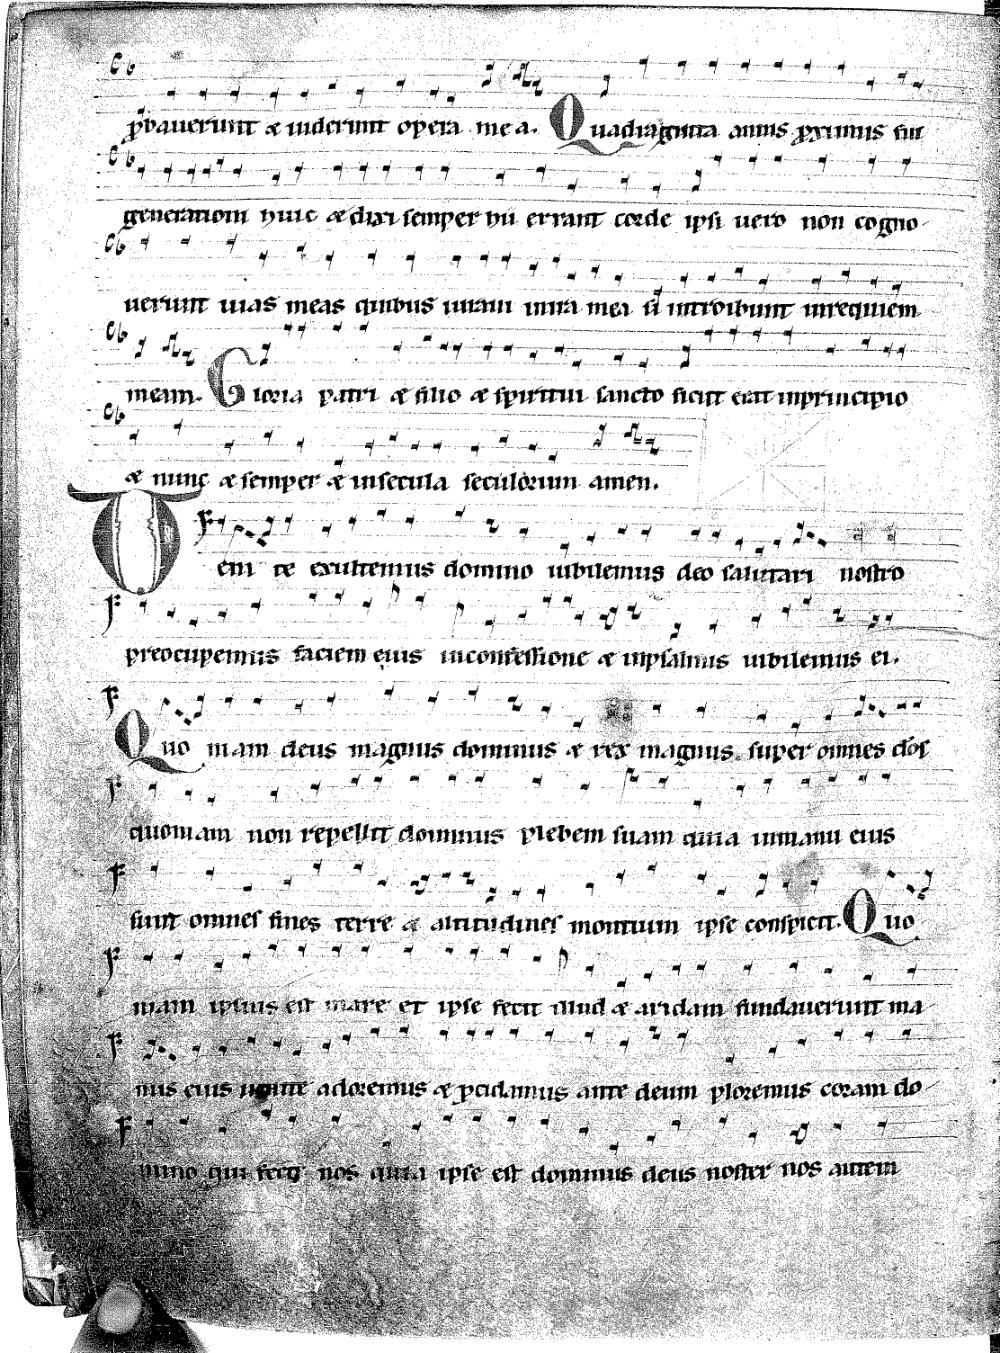 ꝓbauerunt ⁊ uiderunt opera mea. Quadraginta annis ꝓximus fui
generationi huic ⁊ dixi semper hii errant corde ipsi uero non cogno-
uerunt uias meas quibus iuraui in ira mea si introibunt inrequiem
meam. Gloria patri ⁊ filio ⁊ spiritui sancto sicut erat inprincipio
⁊ nunc ⁊ semper ⁊ insecula seculorum amen.
Uenite exultemus domino iubilemus deo salutari nostro
preocupemus faciem eius inconfessione ⁊ inpsalmis iubilemus ei.
Quoniam deus magnus dominus ⁊ rex magnus super omnes deos
quoniam non repellit dominus plebem suam quia inmanu eius
sunt omnes fines terre ⁊ altitudines montium ipse conspicit. Quo
niam ipsius est mare et ipse fecit illud ⁊ aridam fundauerunt ma-
nus eius uenite adoremus ⁊ ꝓcidamus ante deum ploremus coram do-
mino qui fecit nos quia ipse est dominus deus noster nos autem